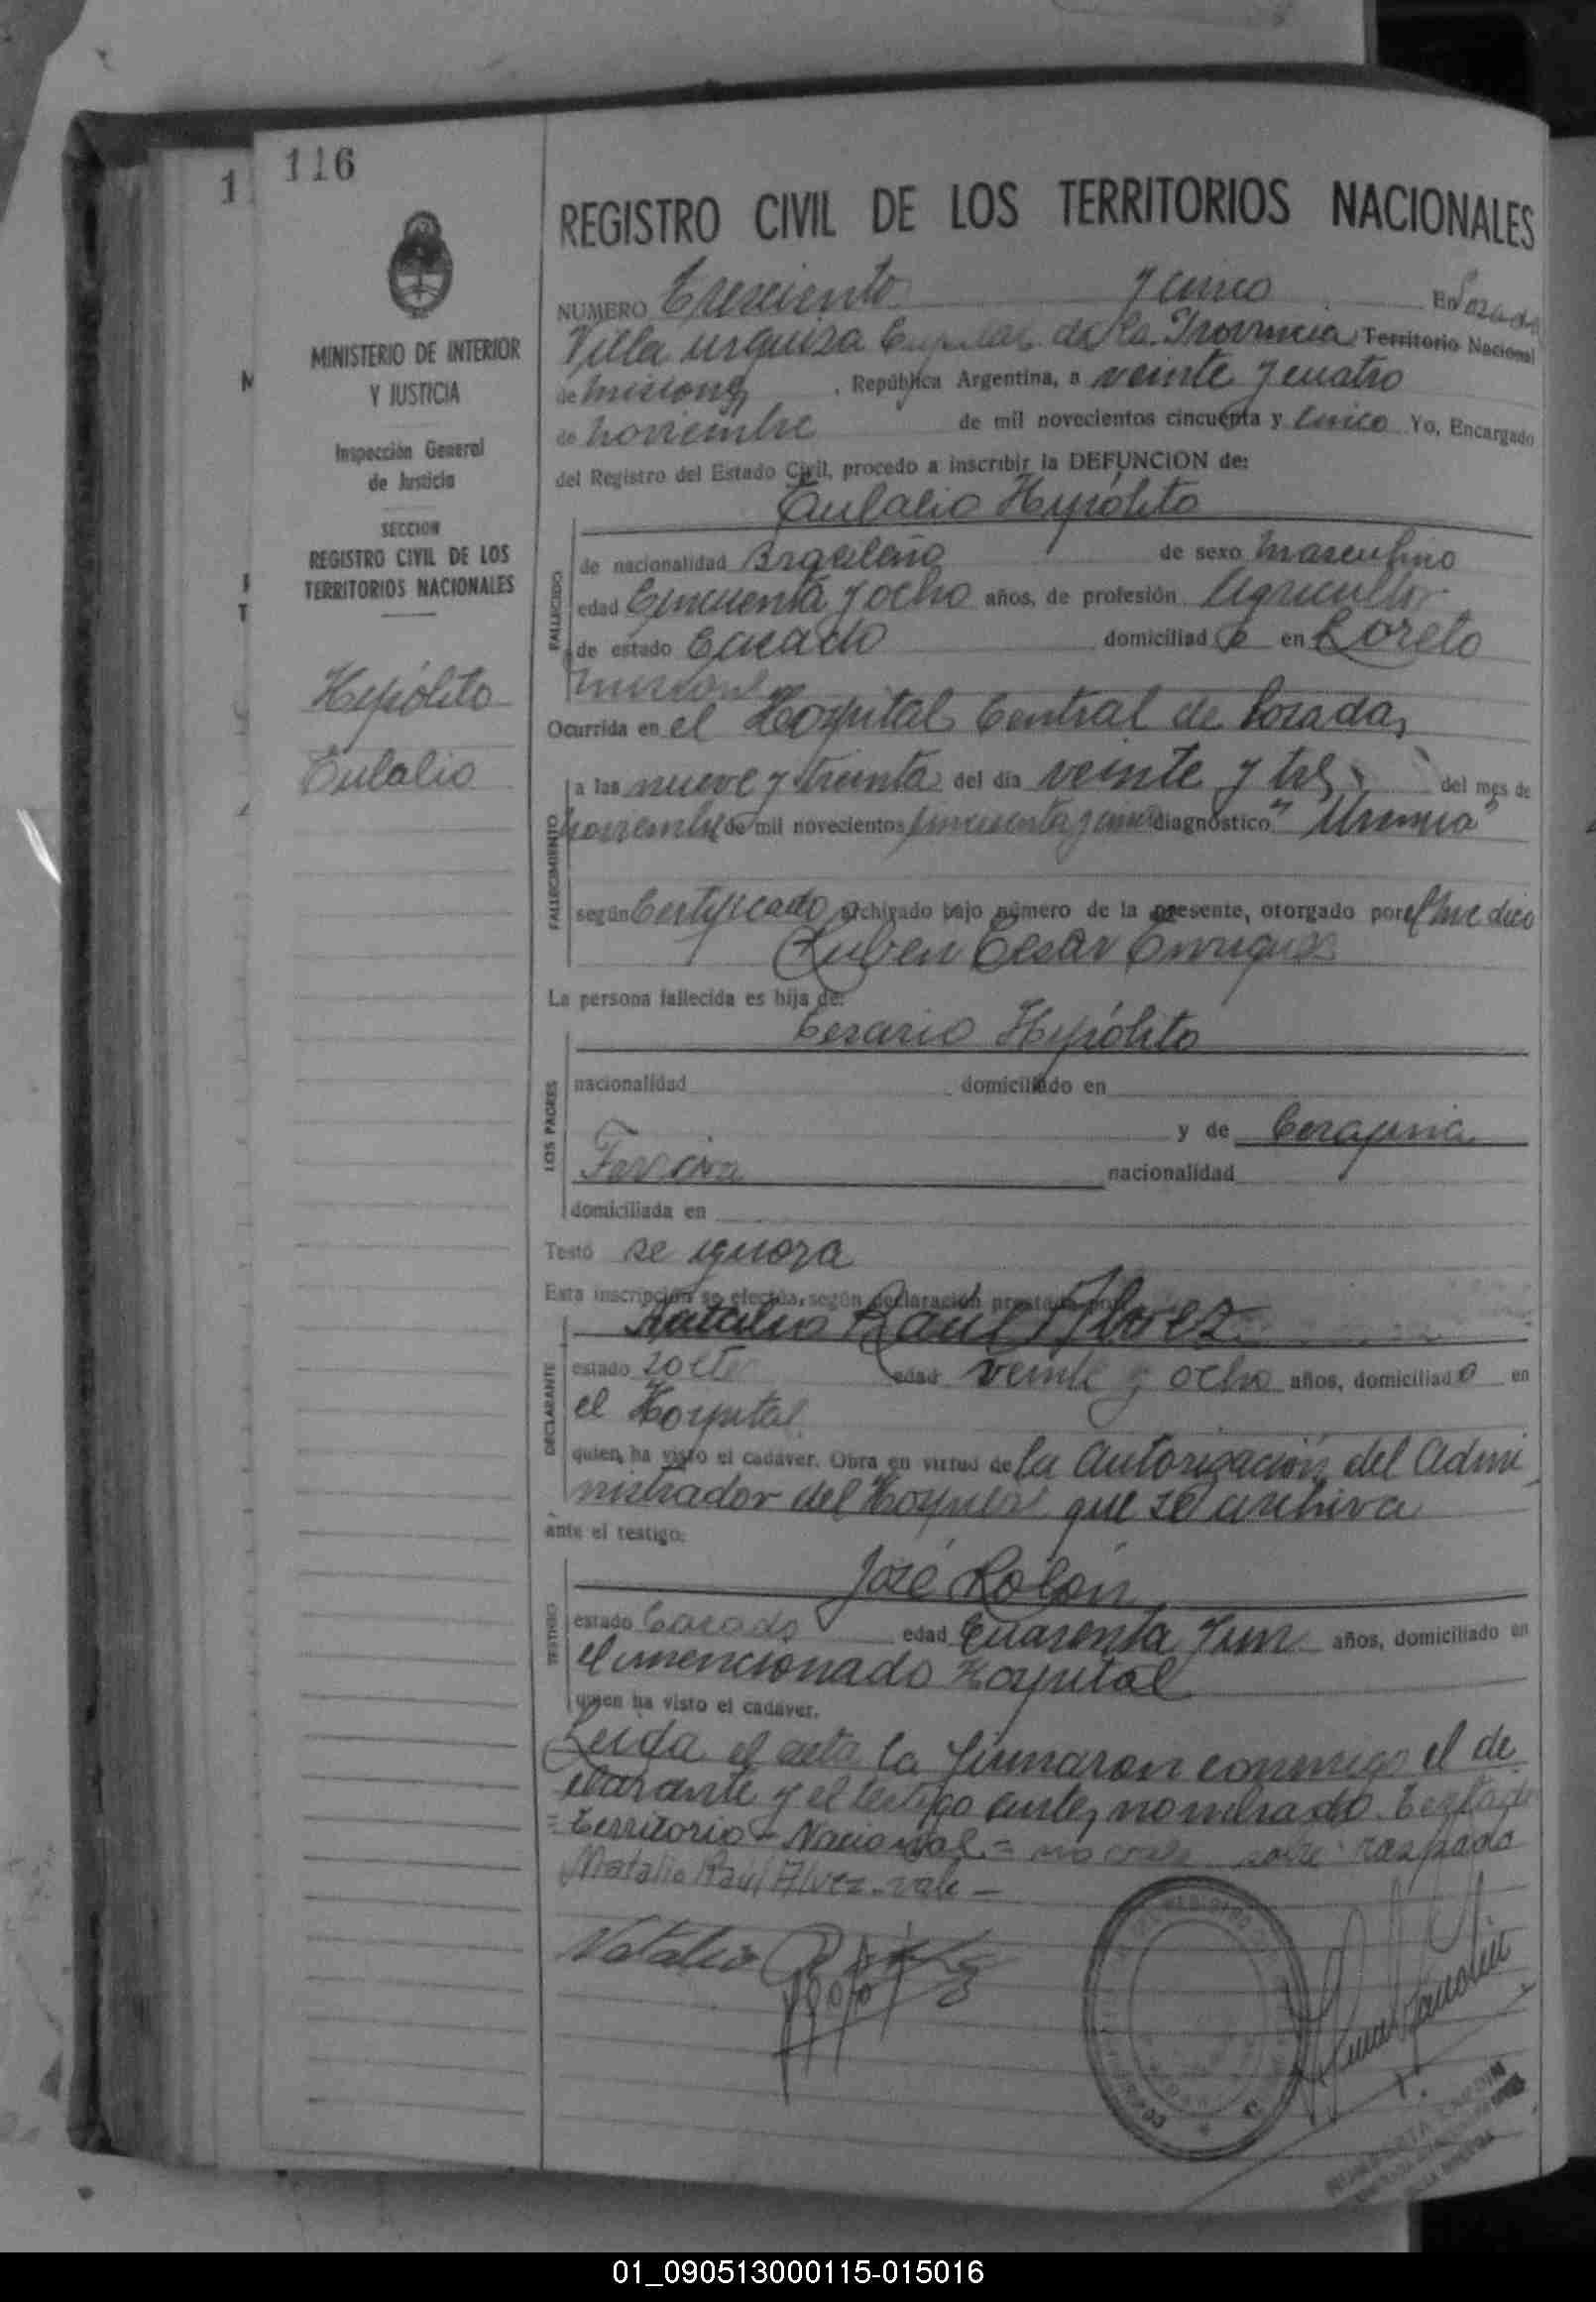 116
1
MINISTERIO DE INTERIOR
Y JUSTICIA
Inspección General
de Justicia
SECCION
REGISTRO CIVIL DE LOS
TERRITORIOS NACIONALES
Hypólito
Eulalio
REGISTRO CIVIL DE LOS TERRITORIOS NACIONALES
NUMERO Tresciento y cinco En Posadas
Villa urquiza Capital de la Provincia Territorio Nacional
de misiones, República Argentina, a veinte y cuatro
de noviembre de mil novecientos cincuenta y cinco Yo, Encargado
del Registro del Estado Civil, procedo a inscribir la DEFUNCION de:
Eulalio Hypólito
FALLECIDO
de nacionalidad Brasileño de sexo masculino
edad Cincuenta y ocho años, de profesión Agricultor
de estado Casado domiciliado en Loreto
misiones
Ocurrida en el Hospital Central de Posadas
FALLECIMIENTO
a las nueve y treinta del día veinte y tres del mes de
noviembre de mil novecientos cincuenta y cinco diagnóstico "Uremia"
según Certificado archivado bajo número de la presente, otorgado por el médico
Ruben Cesar
La persona fallecida es hija de:
LOS PADRES
Cesario Hypólito
nacionalidad domiciliado en
y de
nacionalidad
domiciliada en
Testó se ignora
Esta inscripción se efectúa, según declaración prestada por
DECLARANTE
Natalio Raul Alvez
estado edad veinte y ocho años, domiciliado en
el Hospital
quien, ha visto el cadáver. Obra en virtud de la autorización del Admi
nistrador del Hospital que se archiva
ante el testigo:
TESTIGO
José Rolón
estado Casado edad Cuarenta y un años, domiciliado en
el mencionado Hospital
quien ha visto el cadáver.
Leida el acta la firmaron conmigo el de
clarante y el testigo antes nombrado. Testado
=Territorio - Nacional = no vale sobre raspado
Natalio Raul Alvez - vale -
Natalio
01_090513000115-015016